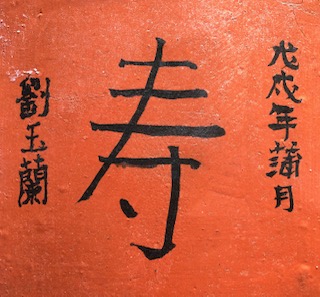 戊戌年蒲月
寿
劉玉蘭